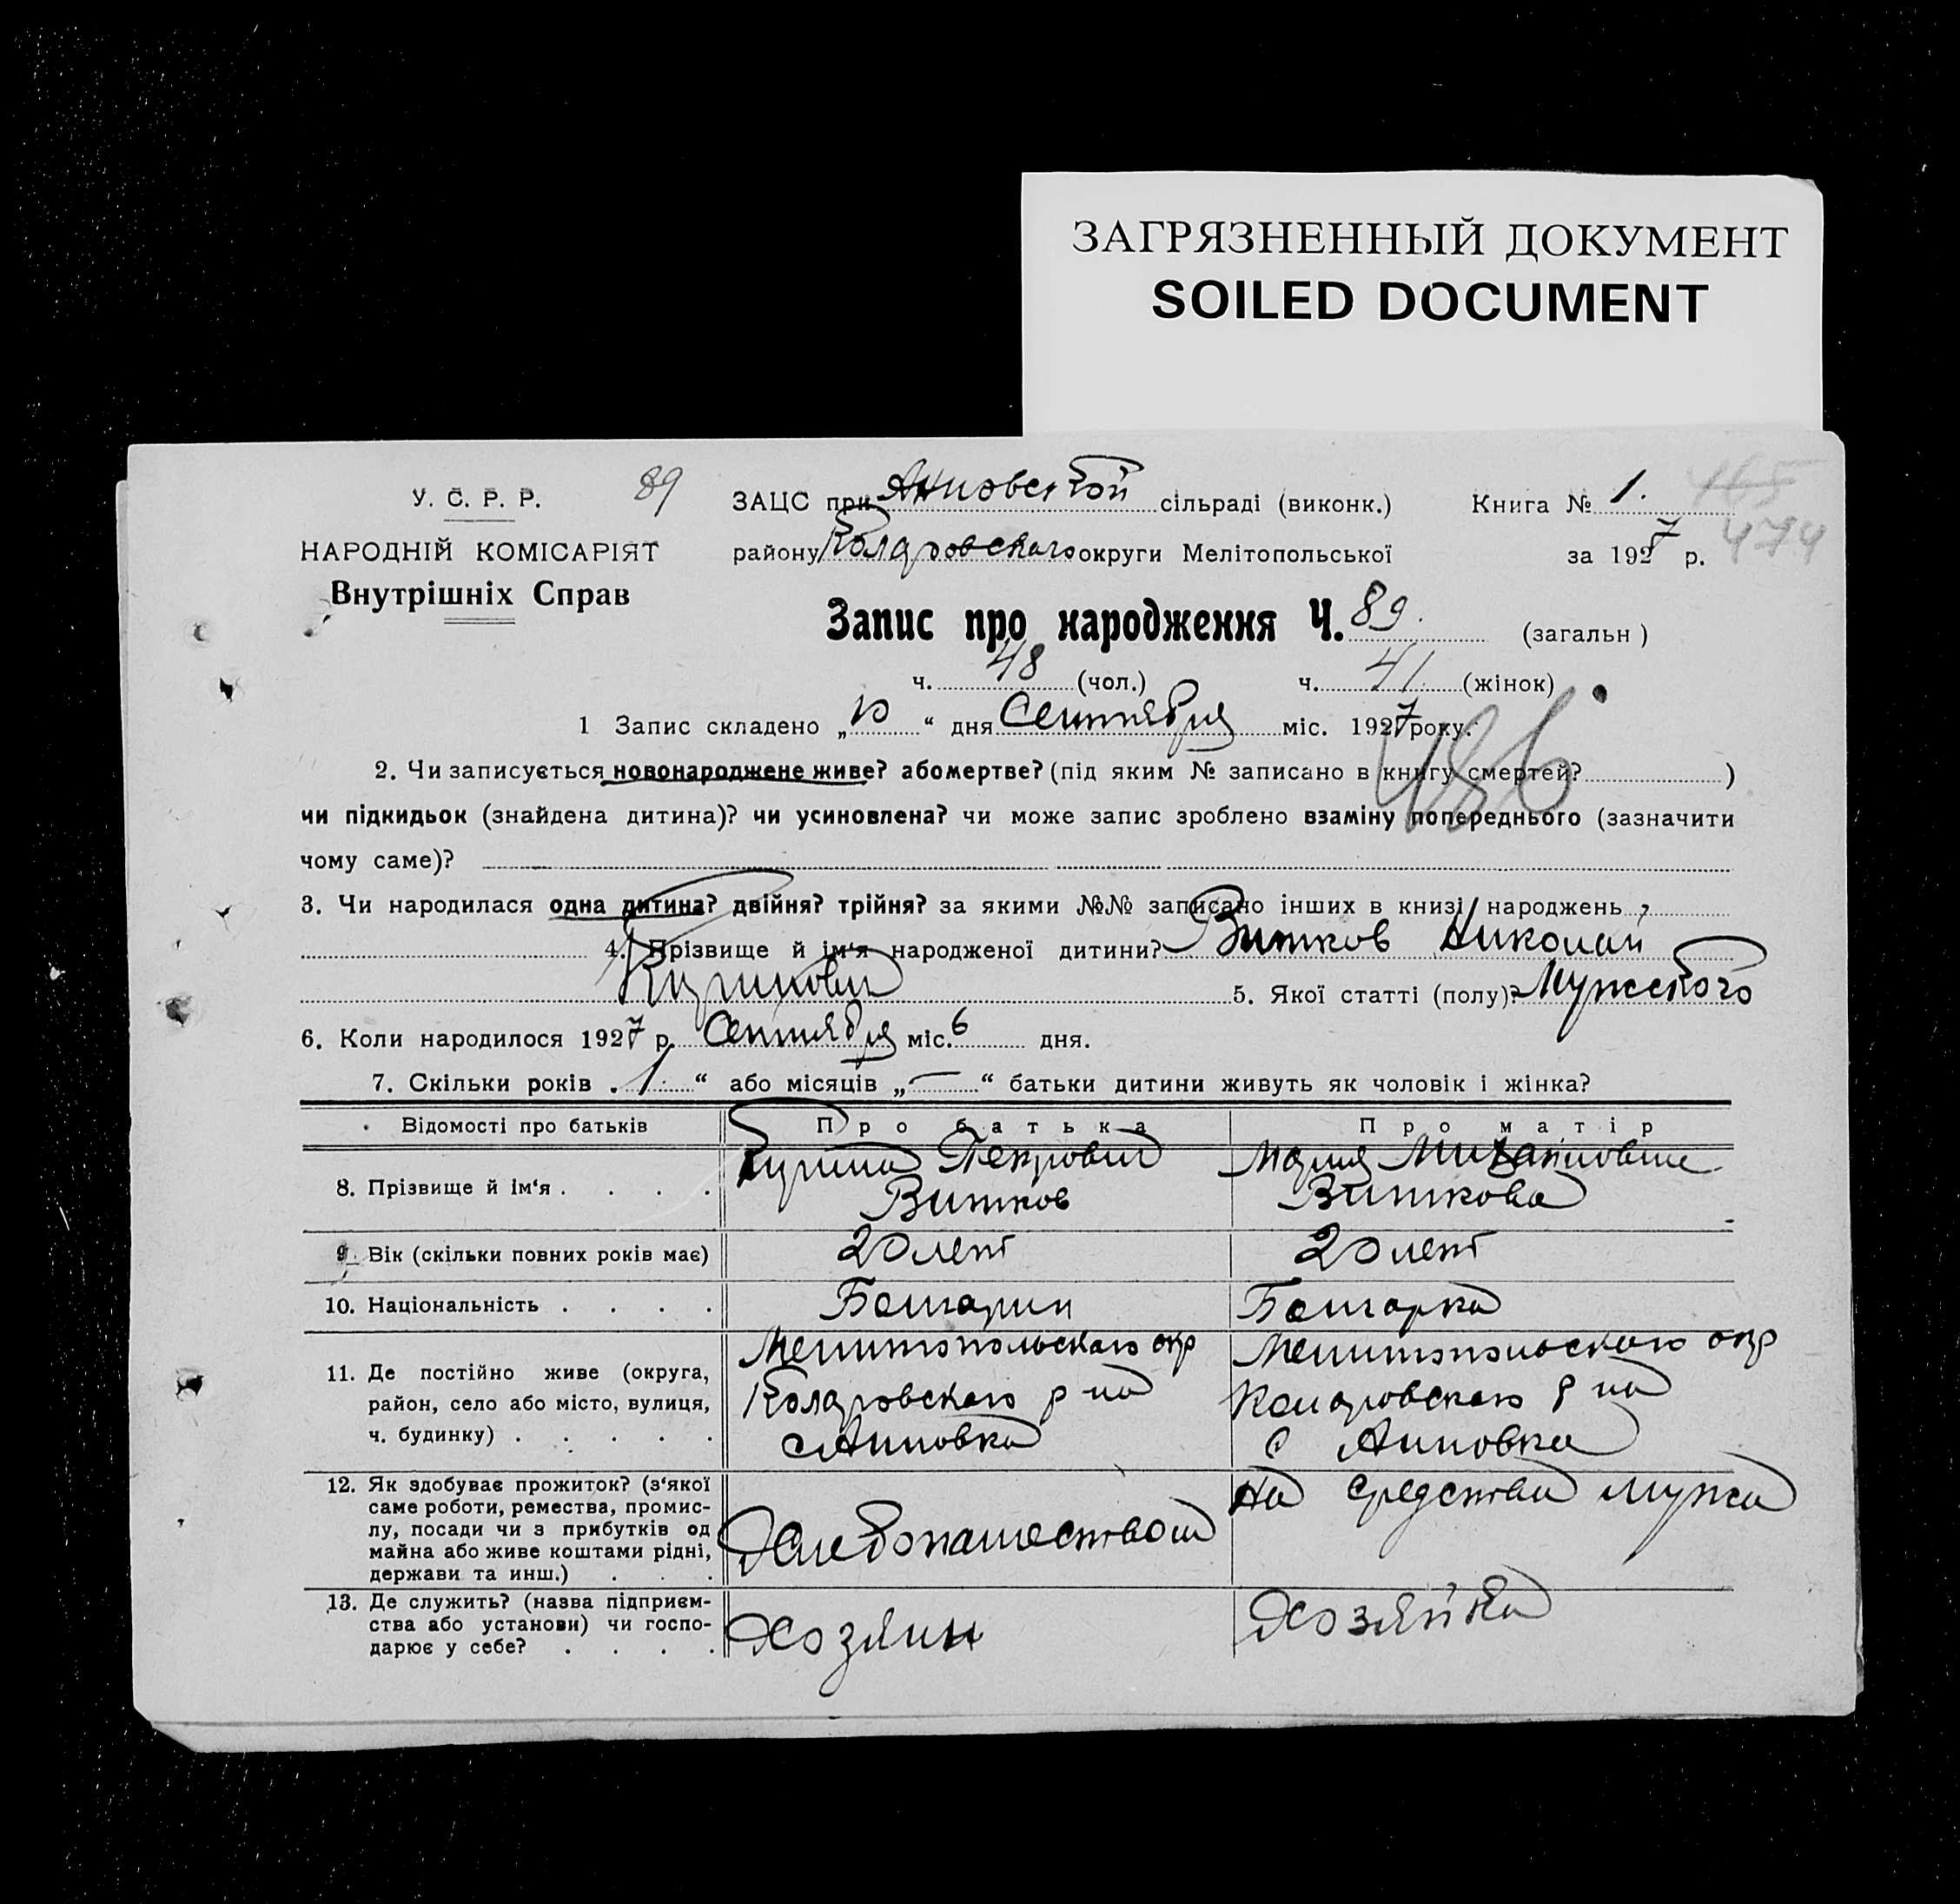 ЗАГРЯЗНЕННЫЙ ДОКУМЕНТ
SOILED DOCUMENT
У. С. Р. Р.
89
ЗАЦС при Анновской сільраді (виконк.)
Книга № 1.
165
474
НАРОДНІЙ КОМІСАРІЯТ
району Коларовского округи Мелітопольської
за 1927 р.
Внутрішніх Справ
Запис про народження Ч. 89. (загальн)
ч. 48 (чол.) ч. 41 (жінок)
1 Запис складено „10“ дня Сентября міс. 1927 року.
486
2. Чи записується новонароджене живе? або мертве? (під яким № записано в книгу смертей? )
чи підкидьок (знайдена дитина)? чи усиновлена? чи може запис зроблено взаміну попереднього (зазначити
чому саме)?
3. Чи народилася одна дитина? двійня? трійня? за якими №№ записано інших в книзі народжень ?
4. Прізвище й ім‘я народженої дитини? Витков Николай
5. Якої статті (полу)? Мужского
6. Коли народилося 1927 р. Сентября міс. 6 дня.
7. Скільки років „1“ або місяців „—“ батьки дитини живуть як чоловік і жінка?
Відомості про батьків
Про батька
Про матір
8. Прізвище й ім‘я . . . .
Петрович
Витков
Мария Михайловна
Виткова
9. Вік (скільки повних років має)
20 лет
20 лет
10. Національність . . . .
Болгарин
Болгарка
11. Де постійно живе (округа,
район, село або місто, вулиця,
ч. будинку) . . . . .
Мелитопольского окр
Коларовского р-на
с Анновка
Мелитопольского окр
Коларовского р-на
с Анновка
12. Як здобуває прожиток? (з‘якої
саме роботи, ремества, промис-
лу, посади чи з прибутків од
майна або живе коштами рідні,
держави та инш.) . . .
Хлебопашеством
на средства мужа
13. Де служить? (назва підприєм-
ства або установи) чи госпо-
дарює у себе? . . . .
Хозяин
Хозяйка